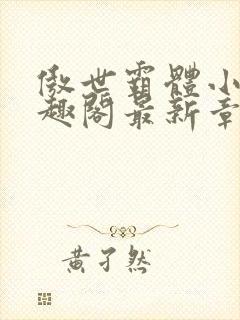 傲世霸體小
趣閣最新章
黄孑然